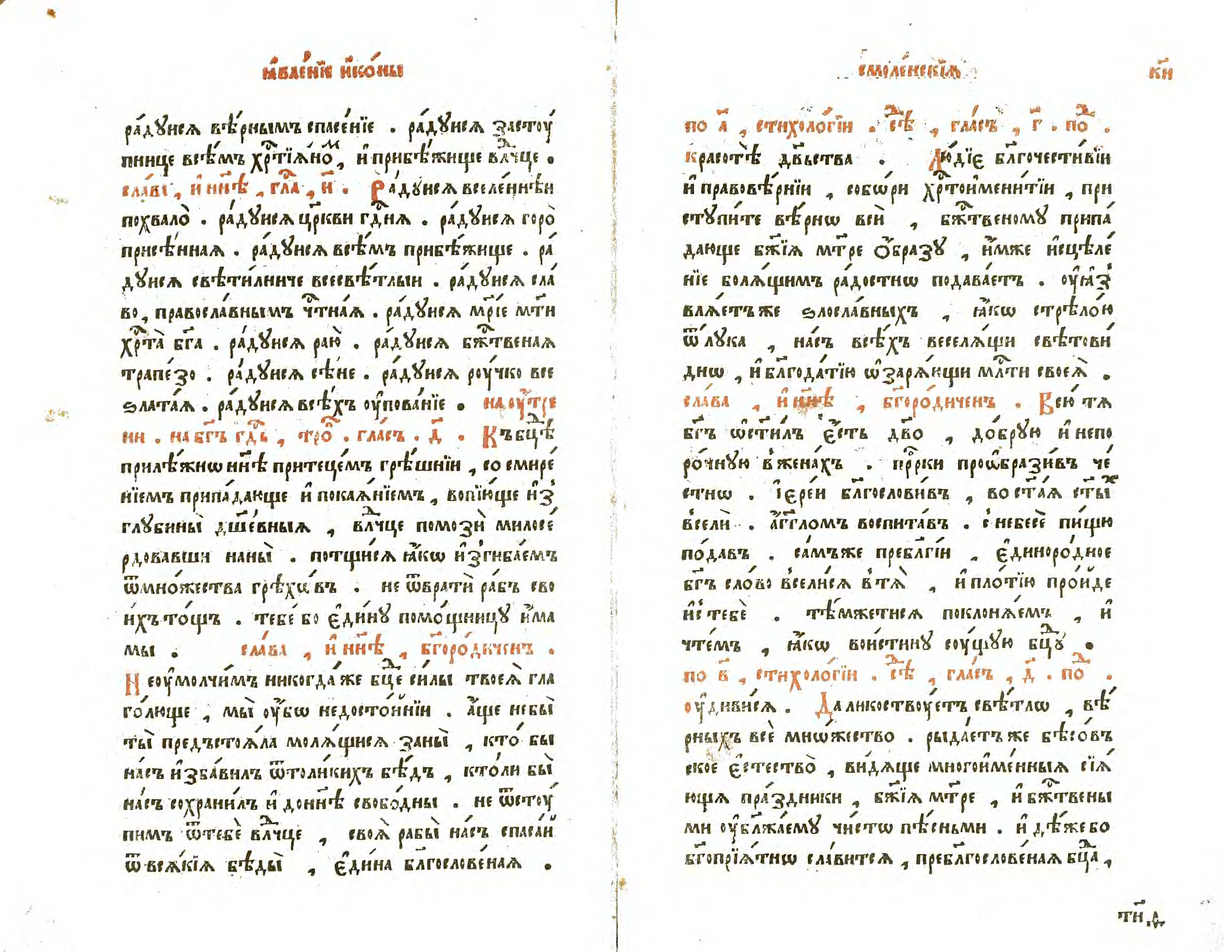 ꙗ҆вле́нїе и҆ко́ны
ра́дꙋисѧ вѣ́рнымъ спасе́нїе . ра́дꙋисѧ застоу́
пнице все́мъ хрⷭ҇тїѧ́но́мъ , и҆ прибѣ́жище влⷣчце .
сла́ва , и҆ нн҃ѣ , гла́ , и҃ . Ра́дꙋисѧ вселе́ннѣи
похвало̀ . ра́дꙋисѧ цр҃кви гдⷭ҇нѧ . ра́дꙋисѧ горо̀
присѣ́ннаѧ . ра́дꙋисѧ всѣ́мъ прибѣ́жище . ра́
дꙋисѧ свѣти́лниче всесвѣ́тлыи . ра́дꙋисѧ сла́
во , правосла́внымъ чⷭ҇тнаѧ . ра́дꙋисѧ мр҃їе мт҃и
хрⷭ҇та̀ бг҃а . ра́дꙋисѧ раю̀ . ра́дꙋисѧ бжⷭ҇твенаѧ
трапе́зо . ра́дꙋисѧ сѣ́не . ра́дꙋисѧ роу́чко все
ѕлата́ѧ . ра́дꙋисѧ всѣ́хъ оу҆пова́нїе . на оу҆́тре
ни . на бг҃ъ гдⷭ҇ь , тро́ . гла́съ . д҃ . Къ бцⷣѣ
прилѣ́жнѡ нн҃ѣ притеце́мъ грѣ́шнїи , со смире́
нїемъ припа́дающе и҆ покаѧ́нїемъ , вопїю́ще и҆з̾
глꙋбины̀ дш҃е́вныѧ , влⷣчце помозѝ милосе́
рдовавши на ны̀ . потщи́сѧ ꙗ҆́кѡ и҆згиба́емъ
ѿ мно́жества грѣхѡ́въ . не ѿвратѝ ра́бъ сво
и́хъ то́щъ . тебе́ бо є҆ди́нꙋ помо́щницꙋ и҆́ма
мы . сла́ва , и҆ нн҃ѣ , бг҃оро́диченъ .
Не оу҆молчи́мъ никогда́ же бцⷣе си́лы твоеѧ̀ гла
го́люще , мы̀ оу҆́бѡ недосто́йнїи . а҆́ще не бы̀
ты̀ предъстоѧ́ла молѧ́щисѧ за ны̀ , кто́ бы
на́съ и҆зба́вилъ ѿ толи́кихъ бѣ́дъ , кто́ ли бы̀
на́съ сохрани́лъ и҆ до нн҃ѣ свобо́дны . не ѿстоу́
пимъ ѿ тебѐ влⷣчце , своѧ̀ рабы̀ на́съ спаса́й
ѿ всѧ́кїѧ бѣды̀ , є҆ди́на бл҃гослове́наѧ .
смоле́нскїѧ
к҃и
по а҃ , стихоло́гїи . сѣⷣ , гла́съ , г҃ . поⷣ .
красотѣ̀ дв҃ьства . Лю́дїе бл҃гочести́вїи
и҆ правовѣ́рнїи , собо́ри хрⷭ҇тоимени́тїи , при
стꙋпи́те вѣ́рнѡ всѝ , бжⷭ҇твеномꙋ припа́
дающе бж҃їѧ мт҃ре ѻ҆́бразꙋ , и҆́мже и҆сцѣле́
нїе болѧ́щимъ ра́достнѡ подава́етъ . оу҆ѧ҆з̾
влѧ́етъ же ѕлосла́вныхъ , ꙗ҆́кѡ стрѣло́ю
ѿ лꙋ́ка , на́съ всѣ́хъ веселѧ́щи свѣ́тови
днѡ , и҆ бл҃года́тїю ѡ҆зарѧ́ющи млⷭ҇ти своеѧ̀ .
сла́ва , и҆ нн҃ѣ , бг҃оро́диченъ . Всю́ тѧ
бг҃ъ ѡ҆ст҃и́лъ є҆́сть дв҃о , до́брꙋю и҆ непо
ро́чнꙋю в̾ жена́хъ . прⷪ҇рки проѡбрази́въ че́
стнѡ . і҆ере́и бл҃гослови́въ , во ст҃а́ѧ ст҃ы́хъ
вселѝ . а҆́гг҃ломъ воспита́въ . с небесѐ пи́щю
пода́въ . са́мъ же пребл҃гі́и , є҆диноро́дное
бг҃ъ сло́во всели́сѧ в̾ тѧ̀ , и҆ пло́тїю про́йде
и҆с̾ тебѐ . тѣ́мже ти сѧ поклонѧ́емъ , и҆
чте́мъ , ꙗ҆́кѡ вои́стинꙋ соу́щꙋю бцⷣꙋ .
по в҃ , стихоло́гїи . сѣⷣ , гла́съ , д҃ . поⷣ .
оу҆диви́сѧ . Да ликоствоу́етъ свѣ́тлѡ , вѣ́
рныхъ всѐ мно́жество . рыда́етъ же бѣсо́въ
ское є҆стество̀ , ви́дѧще многоиме́нныѧ сїѧ́
ющѧ пра́здники , бж҃їѧ мт҃ре , и҆ бжⷭ҇твены
ми оу҆блжа́емꙋ чи́стѡ пѣ́сньми . и҆дѣ́же бо
бг҃опрїѧ́тнѡ сла́витсѧ , пребл҃гослове́наѧ бцⷣа ,